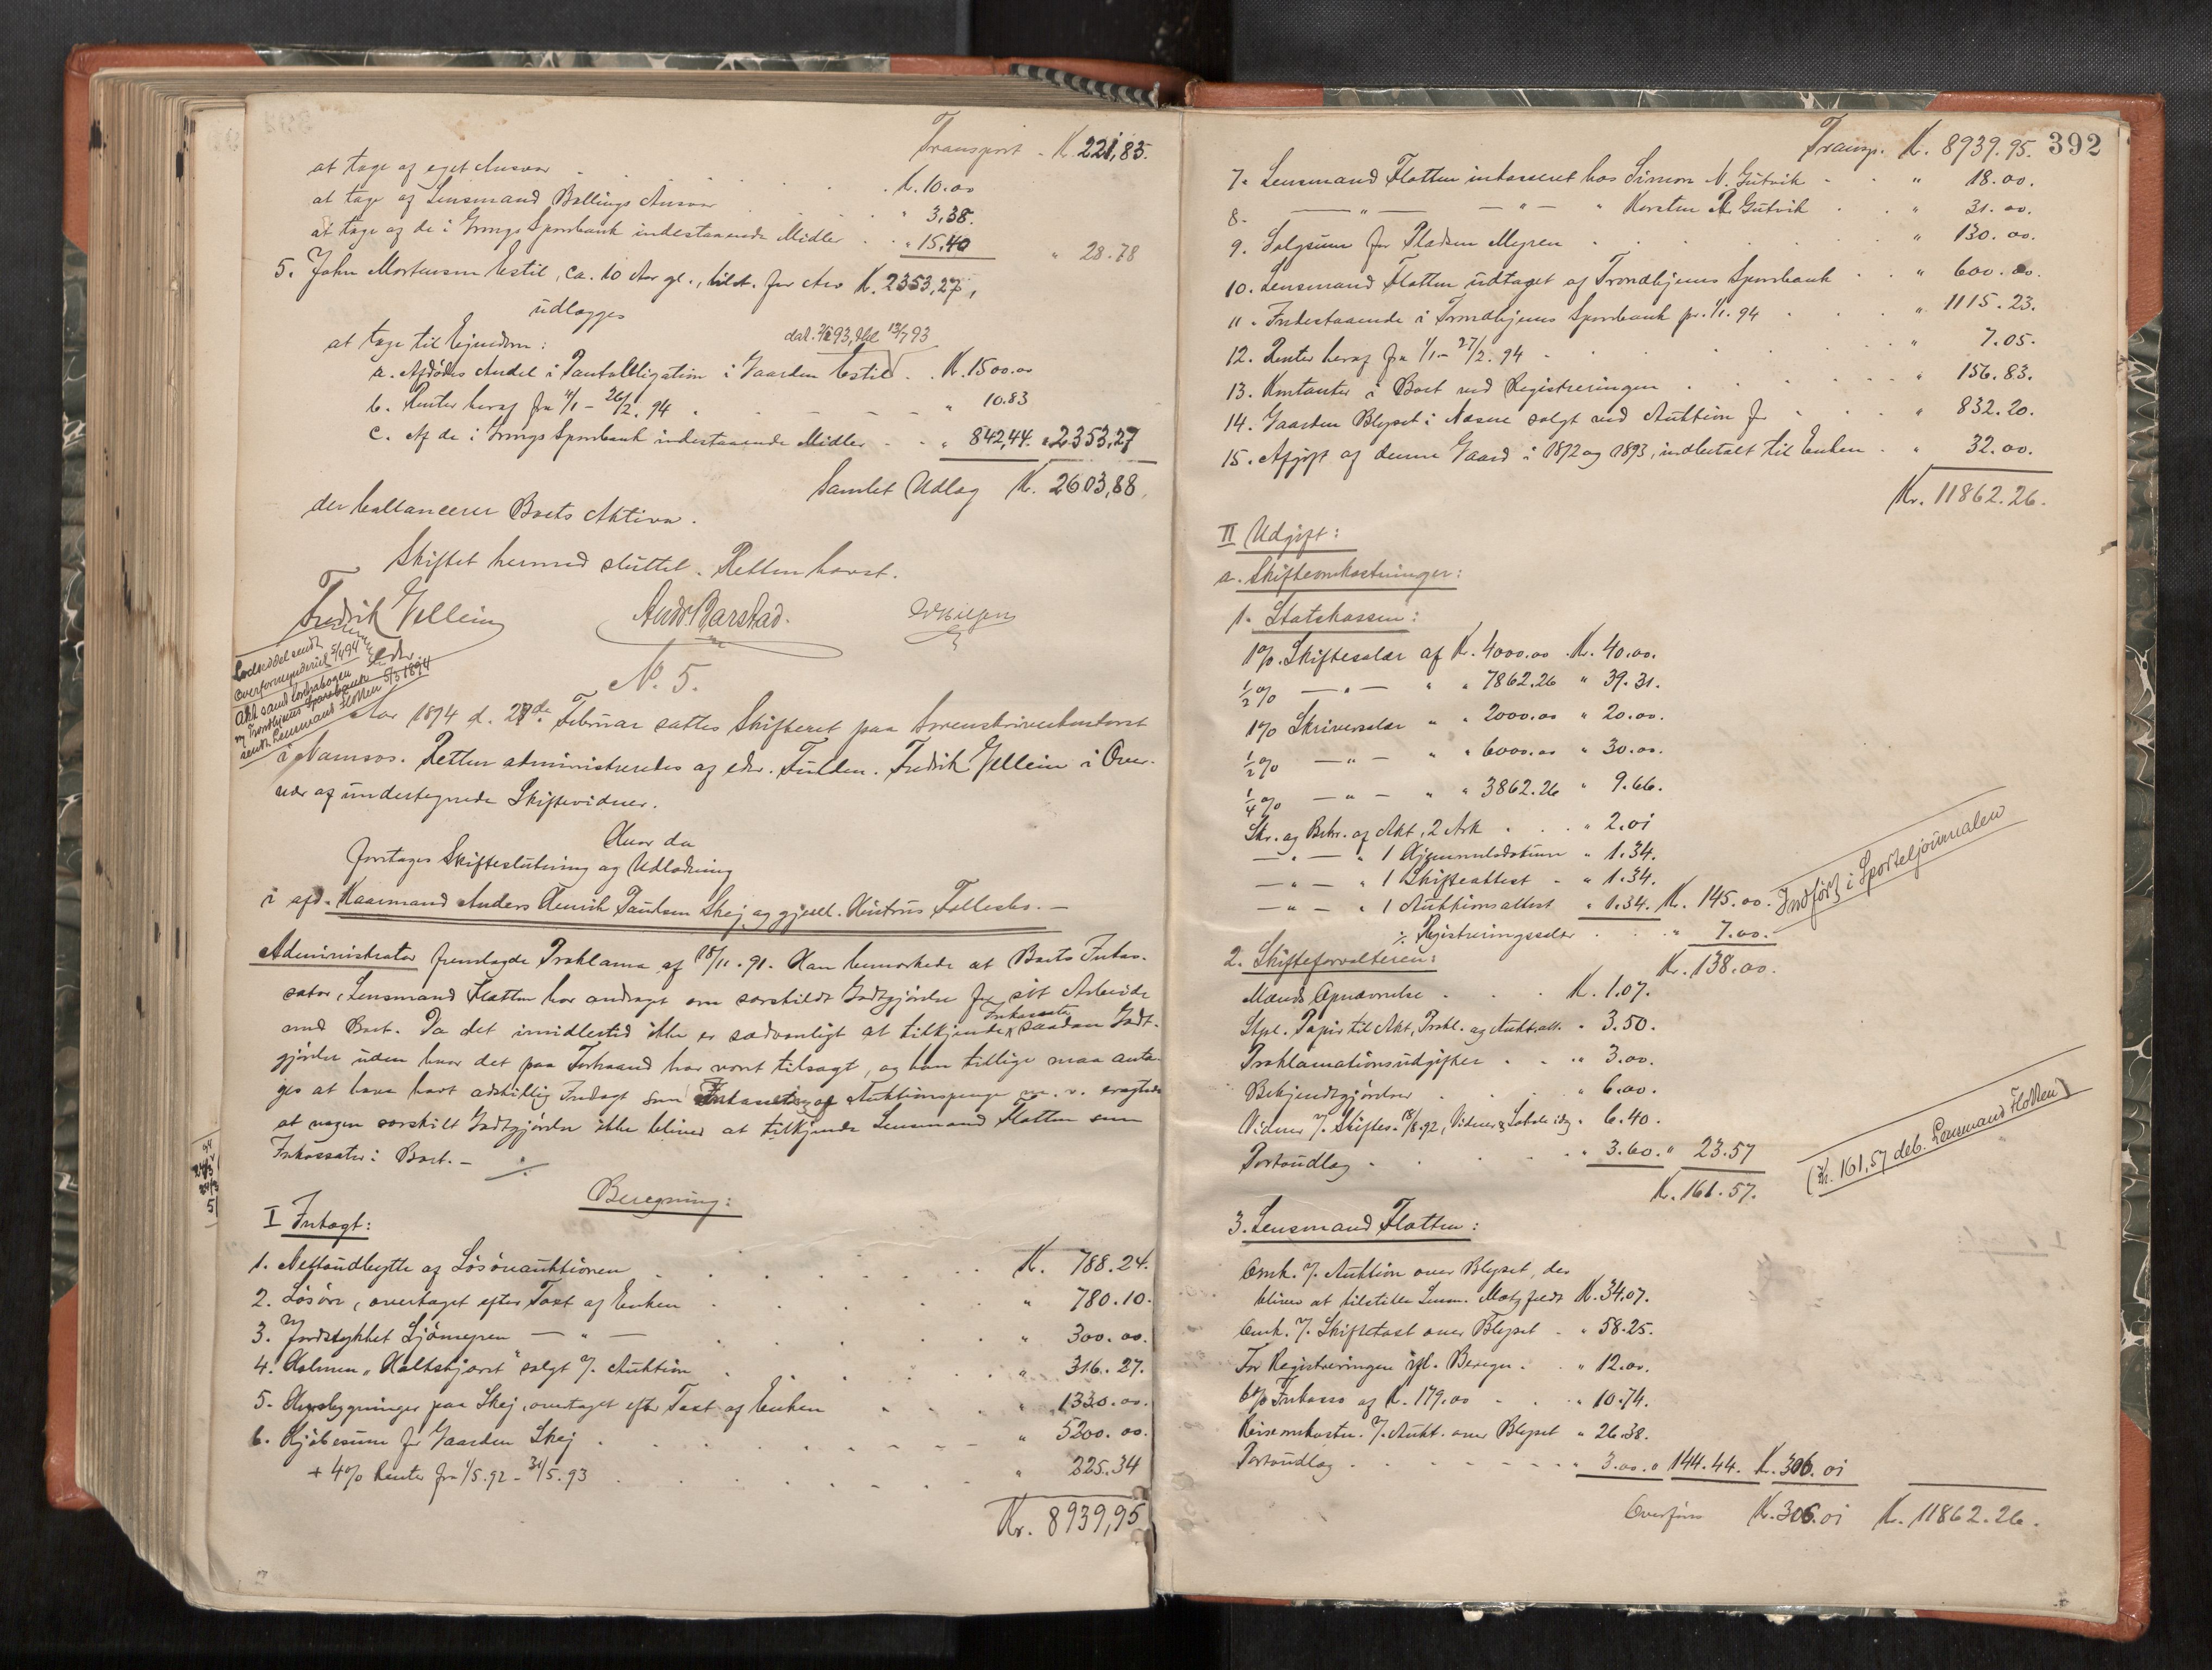 Transport - K. 221,85.
at tage af eget Ansvar . . . K. 10.00
at tage af Lensmand Bøllings Ansvar . . " 3,38.
at tage af de i Grongs Sparebank indestaaende Midler . . " 15,40 " 28.78
5. John Mortensen Estil, ca. 10 Aar gl., tilst. for Arv K. 2353,27,
udlægges
at tage til Ejendom:
a. Afdødes Andel i Pantobligation i Gaarden Estil . . K. 1500.00
b. Renter heraf fra 11/1 - 26/2. 94 . - - - " 10.83
c. Af de i Grongs Sparebank indestaaende Midler - . " 842,44. " 2353,27
Samlet Udlæg K. 2603,88.
der ballancerer Boets Aktiva.
Skiftet hermed sluttet. Retten hævet.
Fredrik Gellein Andr. Barstad.
Lodseddel sendt
Overformynderiet 5/4 94
N. 5.
Aar 1894 d. 27de Februar sattes Skifteret paa Sorenskriverkontoret
i Namsos. Retten administreredes af edsv. Fuldm. Fredrik Gellein i Over-
vær af undertegnede Skiftevidner.
Hvor da
foretages Skifteslutning og Udlodning
i afd. Kaarmand Anders Henrik Paulsen Skej og gjenl. Hustrus Fællesbo. -
Administrator fremlagde Proklama af 18/11. 91. Han bemærkede at Boets Inkas-
sator, Lensmand Flotten har andraget om særskildt Godtgjørelse for sit Arbeide
med Boet. Da det imidlertid ikke er sædvanligt at tilkjende Inkassator saadan Godt-
gjørelse uden hvor det paa Forhaand har vært tilsagt, og han tillige maa anta-
ges at have havt adskillig Indtægt som Inkassator af Auktionspenge m. v. eragtedes
at nogen særskilt Godtgjørelse ikke bliver at tilkjende Lensmand Flotten som
Inkassator i Boet. -
Beregning:
I Indtægt:
1. Nettoudbytte af Løsøreauktionen . . . K. 788.24.
2. Løsøre, overtaget efter Taxt af Enken . . . " 780.10.
3. Jordstykket Sjømyren - " - . . . " 300.00.
4. Holmen "Kalkskjæret" solgt v. Auktion . . . " 316.27.
5. Husbygninger paa Skej, overtaget efter Taxt af Enken . . " 1330.00.
6. Kjøbesum for Gaarden Skej . . . " 5200.00.
+ 4% Renter fra 1/5. 92 - 31/5. 93 . . . " 225.34
Kr. 8939,95
Transp. K. 8939.95. 392
7. Lensmand Flotten inkasseret hos Simon N. Gutvik - . " 18.00.
8. - " - - " - " Karsten R. Gutvik . . " 31.00.
9. Salgsum for Pladsen Myren . . . " 130.00.
10. Lensmand Flotten udtaget af Trondhjems Sparebank . . " 600.00.
11. Indestaaende i Trondhjems Sparebank pr. 1/1. 94 . . . " 1115.23.
12. Renter heraf fra 1/1 - 27/2. 94 . . . " 7.05.
13. Kontanter i Boet ved Registreringen . . . " 156.83.
14. Gaarden Blyset i Næsne solgt ved Auktion for . . " 832.20.
15. Afgift af denne Gaard i 1892 og 1893, indbetalt til Enken . " 32.00.
Kr. 11862.26.
II Udgift:
a. Skifteomkostninger:
1. Statskassen:
1% Skiftesalær af K. 4000.00 . K. 40.00.
1/2 % - " - " " 7862.26 " 39.31.
1% Skriversalær " " 2000.00 " 20.00.
1/2 % - " - " " 6000.00 " 30.00.
1/4 % - " - " " 3862.26 " 9.66.
Skr. og Bekr. af Akt, 2 Ark . . . " 2.01
- " - " 1 Hjemmelsdokum " 1.34.
- " - " 1 Skifteattest - " 1.34.
- " - " 1 Auktionsattest " 1.34. K. 145.00. Indført i Sporteljournalen
÷ Registreringssalær . . . " 7.00.
K. 138.00.
2. Skifteforvalteren:
Mænds Opnævnelse . . . K. 1.07.
Stpl. Papir til Akt, Prokl. og Aukt.att. . 3.50.
Proklamationsudgifter . . . " 3.00.
Bekjendtgjørelser . . . " 6.00.
Vidner v. Skiftes. 18/8. 92, Vidner & Lokale idag . 6.40.
Portoudlæg . . . " 3.60. " 23.57
K. 161.57.
(Kr. 161,57 deb. Lensmand Flotten)
3. Lensmand Flotten:
Omk. v. Auktion over Blyset, der
bliver at tilstille Lensm. Motzfeldt K. 34.07.
Omk. v. Skiftetaxt over Blyset . " 58.25.
For Registreringen ifl. Beregn. . . " 12.00.
6% Inkasso af K. 179.00 . . " 10.74.
Reiseomkostn. v. Aukt. over Blyset " 26.38.
Portoudlæg . . . " 3.00. " 144.44. K. 306.01
Overføres K. 306.01 K. 11862.26.